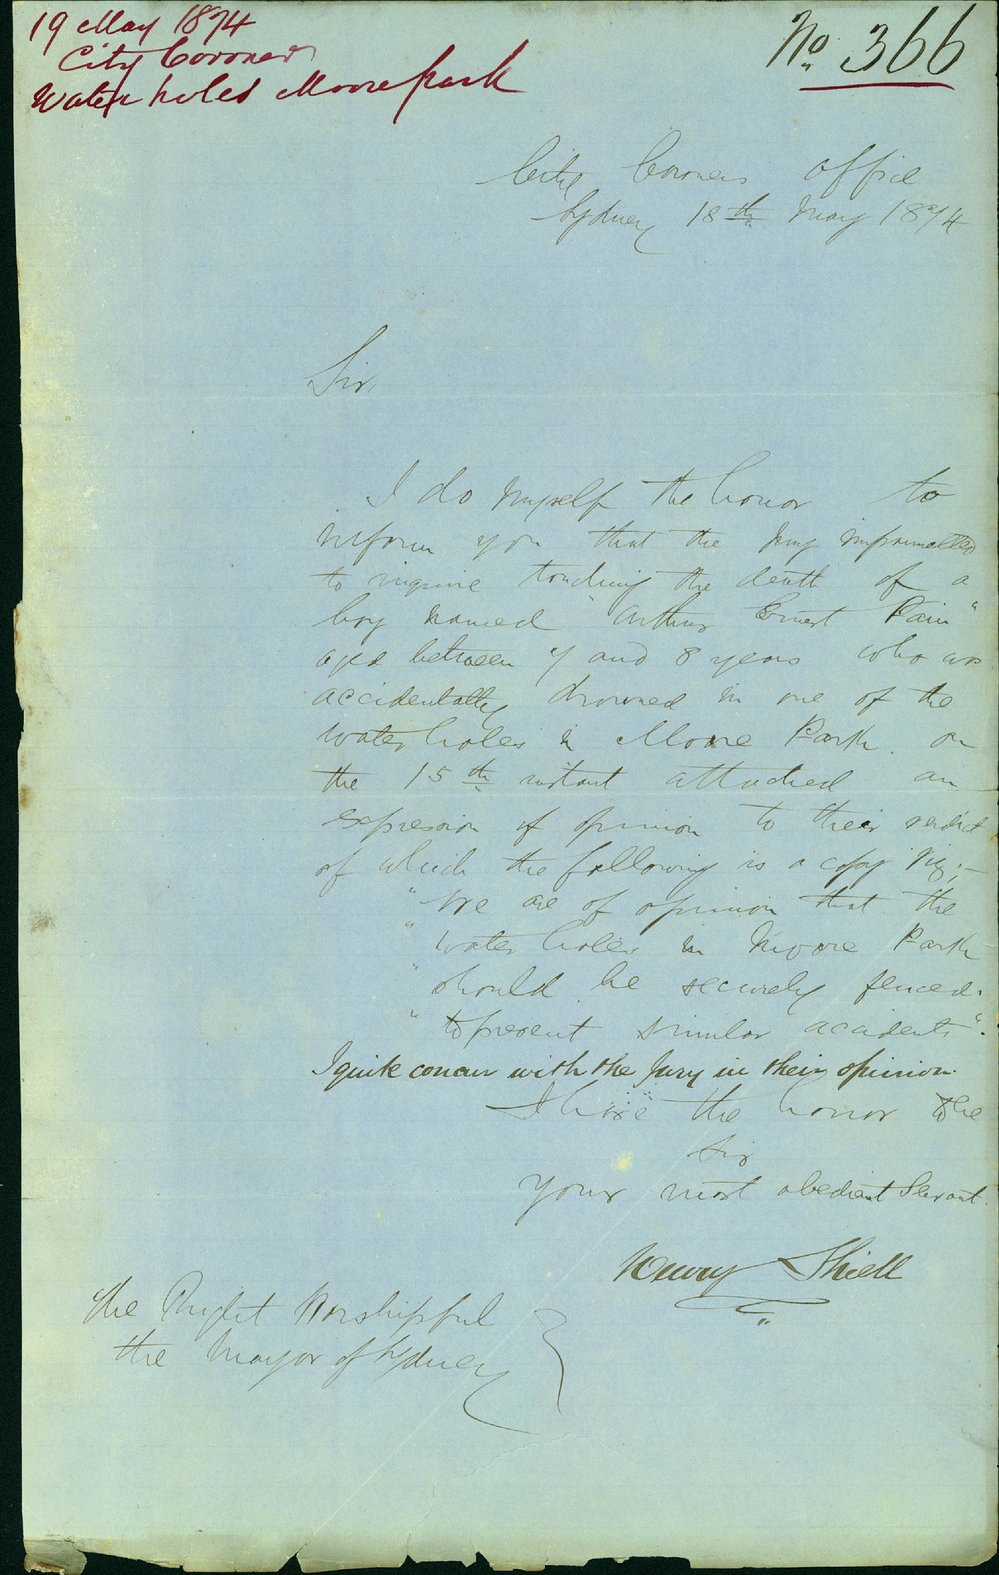 19 May 1874
City Coroner
Water holes Moore park
No. 366
City Coroners Office
Sydney 18th May 1874
Sir,
I do myself the honor to
inform you that the Jury impannelled
to inquire touching the death of a
boy named "Arthur Ernest Pain"
aged between 7 and 8 years who was
accidentally drowned in one of the
water holes in Moore Park on
the 15th instant attached an
expression of opinion to their verdict
of which the following is a copy viz;—
"We are of opinion that the
"water holes in Moore Park
"should be securely fenced
"to prevent similar accidents".
I quite concur with the Jury in their opinion.
I have the honor to be
Sir
Your most obedient Servant.
Henry Shiell
The Right Worshipful
the Mayor of Sydney }